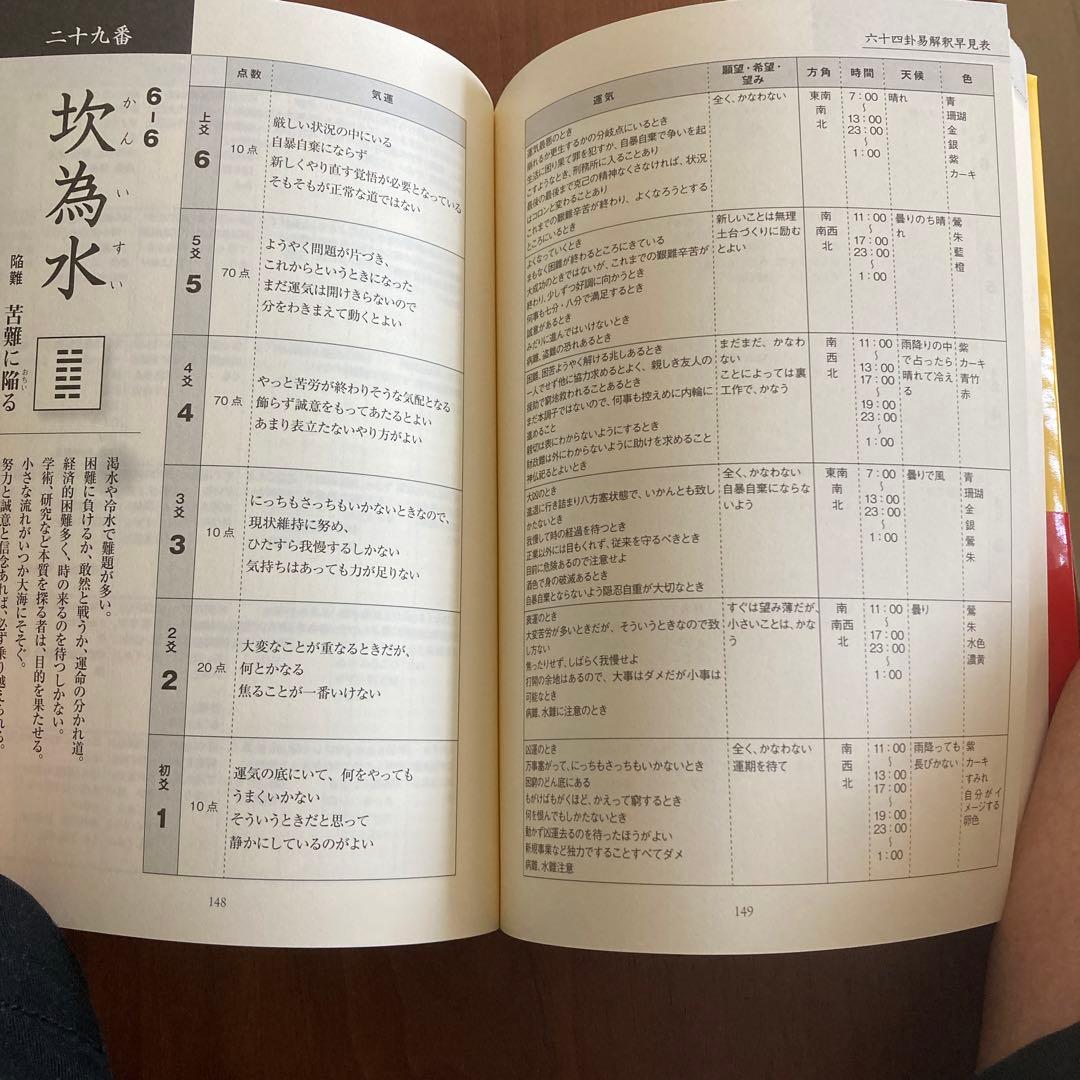 二十九番
6-6
坎為水
かんいすい
陥難 苦難に陥る
おちい
渇水や冷水で難題が多い。
困難に負けるか、敢然と戦うか、運命の分かれ道。
経済的困難多く、時の来るのを待つしかない。
学術、研究など本質を探る者は、目的を果たせる。
小さな流れがいつか大海にそそぐ。
努力と誠意と信念あれば、必ず乗り越えられる。
点数
気運
上爻
6
10点
厳しい状況の中にいる
自暴自棄にならず
新しくやり直す覚悟が必要となっている
そもそもが正常な道ではない
5爻
5
70点
ようやく問題が片づき、
これからというときになった
まだ運気は開けきらないので
分をわきまえて動くとよい
4爻
4
70点
やっと苦労が終わりそうな気配となる
飾らず誠意をもってあたるとよい
あまり表立たないやり方がよい
3爻
3
10点
にっちもさっちもいかないときなので、
現状維持に努め、
ひたすら我慢するしかない
気持ちはあっても力が足りない
2爻
2
20点
大変なことが重なるときだが、
何とかなる
焦ることが一番いけない
初爻
1
10点
運気の底にいて、何をやっても
うまくいかない
そういうときだと思って
静かにしているのがよい
148
六十四卦易解釈早見表
運気
願望・希望・
望み
方角
時間
天候
色
運気最悪のとき
崩れるか更生するかの分岐点にいるとき
生活に困り果て罪を犯すか、自暴自棄で争いを起
こすようなとき、刑務所に入ることあり
最後の最後まで克己の精神なくさなければ、状況
はコロンと変わることあり
これまでの艱難辛苦が終わり、よくなろうとする
ところにいるとき
全く、かなわない
東南
南
北
7:00
〜
13:00
23:00
〜
1:00
晴れ
青
珊瑚
金
銀
紫
カーキ
よくなっていくとき
まもなく困難が終わるところにきている
大成功のときではないが、これまでの艱難辛苦が
終わり、少しずつ好調に向かうとき
何事も七分・八分で満足するとき
誠意があるとき
みだりに進んではいけないとき
病難、盗難の恐れあるとき
新しいことは無理
土台づくりに励む
とよい
南
南西
北
11:00
〜
17:00
23:00
〜
1:00
曇りのち晴
れ
鶯
朱
藍
橙
困難、困苦ようやく解ける兆しあるとき
一人でせず他に協力求めるとよく、親しき友人の
援助で窮地救われることあるとき
まだ本調子ではないので、何事も控えめに内輪に
進めること
親切は表にわからないようにするとき
財政難は外にわからないように助けを求めること
神仏祀るとよいとき
まだまだ、かなわ
ない
ことによっては裏
工作で、かなう
南
西
北
11:00
〜
13:00
17:00
〜
19:00
23:00
〜
1:00
雨降りの中
で占ったら
晴れて冷え
る
紫
カーキ
青竹
赤
大凶のとき
進退に行き詰まり八方塞状態で、いかんとも致し
かたないとき
我慢して時の経過を待つとき
正業以外には目もくれず、従来を守るべきとき
目前に危険あるので注意せよ
酒色で身の破滅あるとき
自暴自棄とならないよう隠忍自重が大切なとき
全く、かなわない
自暴自棄にならな
いよう
東南
南
北
7:00
〜
13:00
23:00
〜
1:00
曇りで風
青
珊瑚
金
銀
鶯
朱
衰運のとき
大変苦労が多いときだが、そういうときなので致
し方ない
焦ったりせず、しばらく我慢せよ
打開の余地はあるので、大事はダメだが小事は
可能なとき
病難、水難に注意のとき
すぐは望み薄だが、
小さいことは、かな
う
南
南西
北
11:00
〜
17:00
23:00
〜
1:00
曇り
鶯
朱
水色
濃黄
凶運のとき
万事塞がって、にっちもさっちもいかないとき
困窮のどん底にある
もがけばもがくほど、かえって窮するとき
何を恨んでもしかたないとき
動かず凶運去るのを待ったほうがよい
新規事業など独力ですることすべてダメ
病難、水難注意
全く、かなわない
運期を待て
南
西
北
11:00
〜
13:00
17:00
〜
19:00
23:00
〜
1:00
雨降っても
長びかない
紫
カーキ
すみれ
自分がイ
メージする
卵色
149